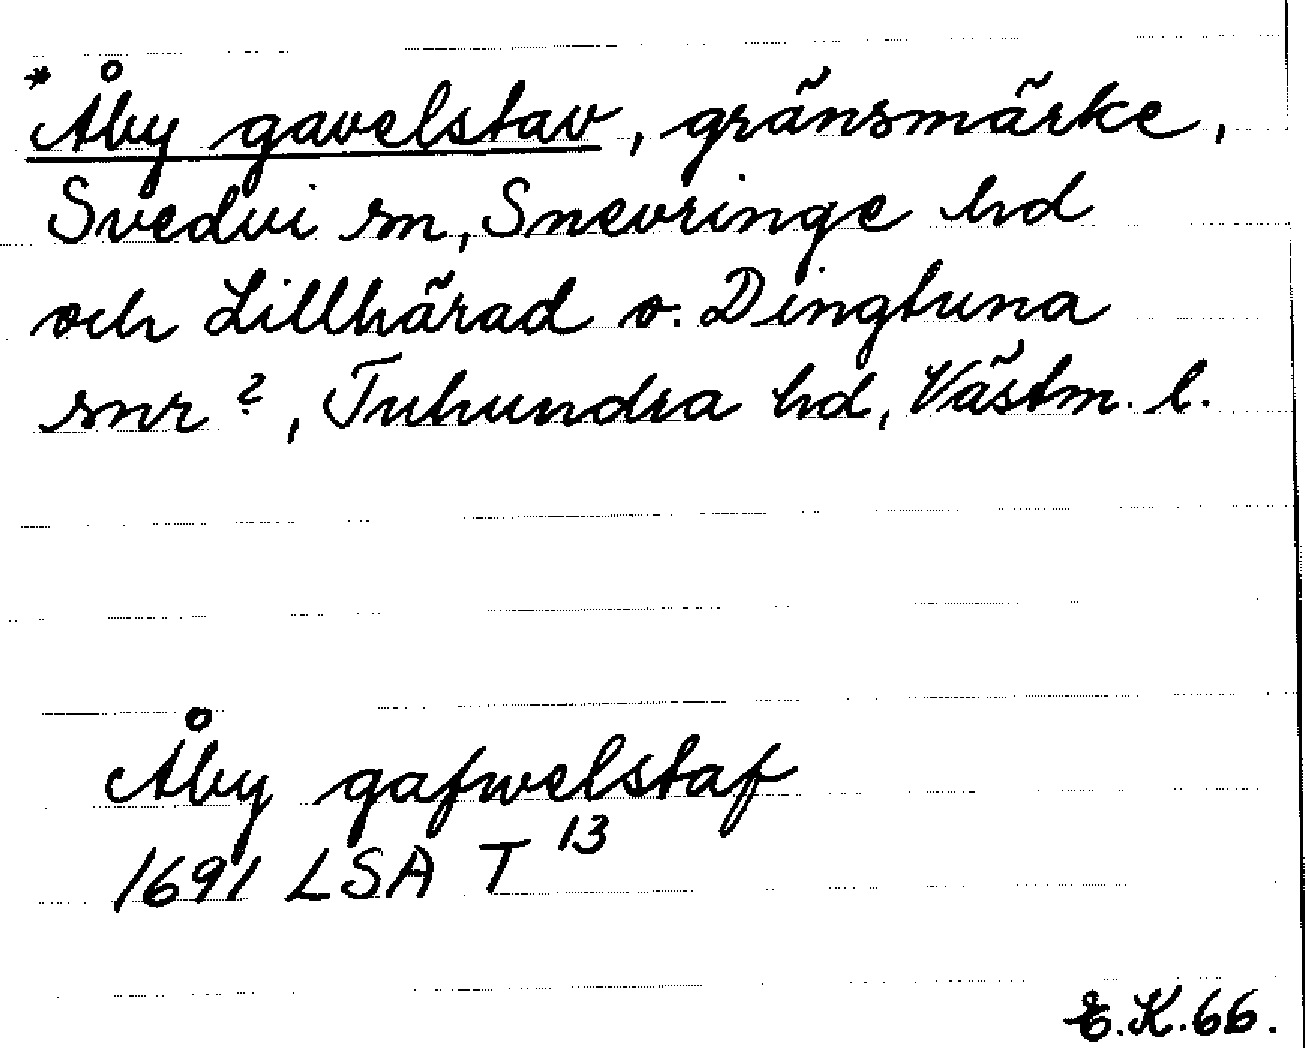 *Åby gavelstav, gränsmärke,
Svedvi sn, Snevringe hd
och Lillhärad o. Dingtuna
snr ?, Tuhundra hd, Västm. l.
Åby gafwelstaf
1691 LSA T 13
E.K.66.